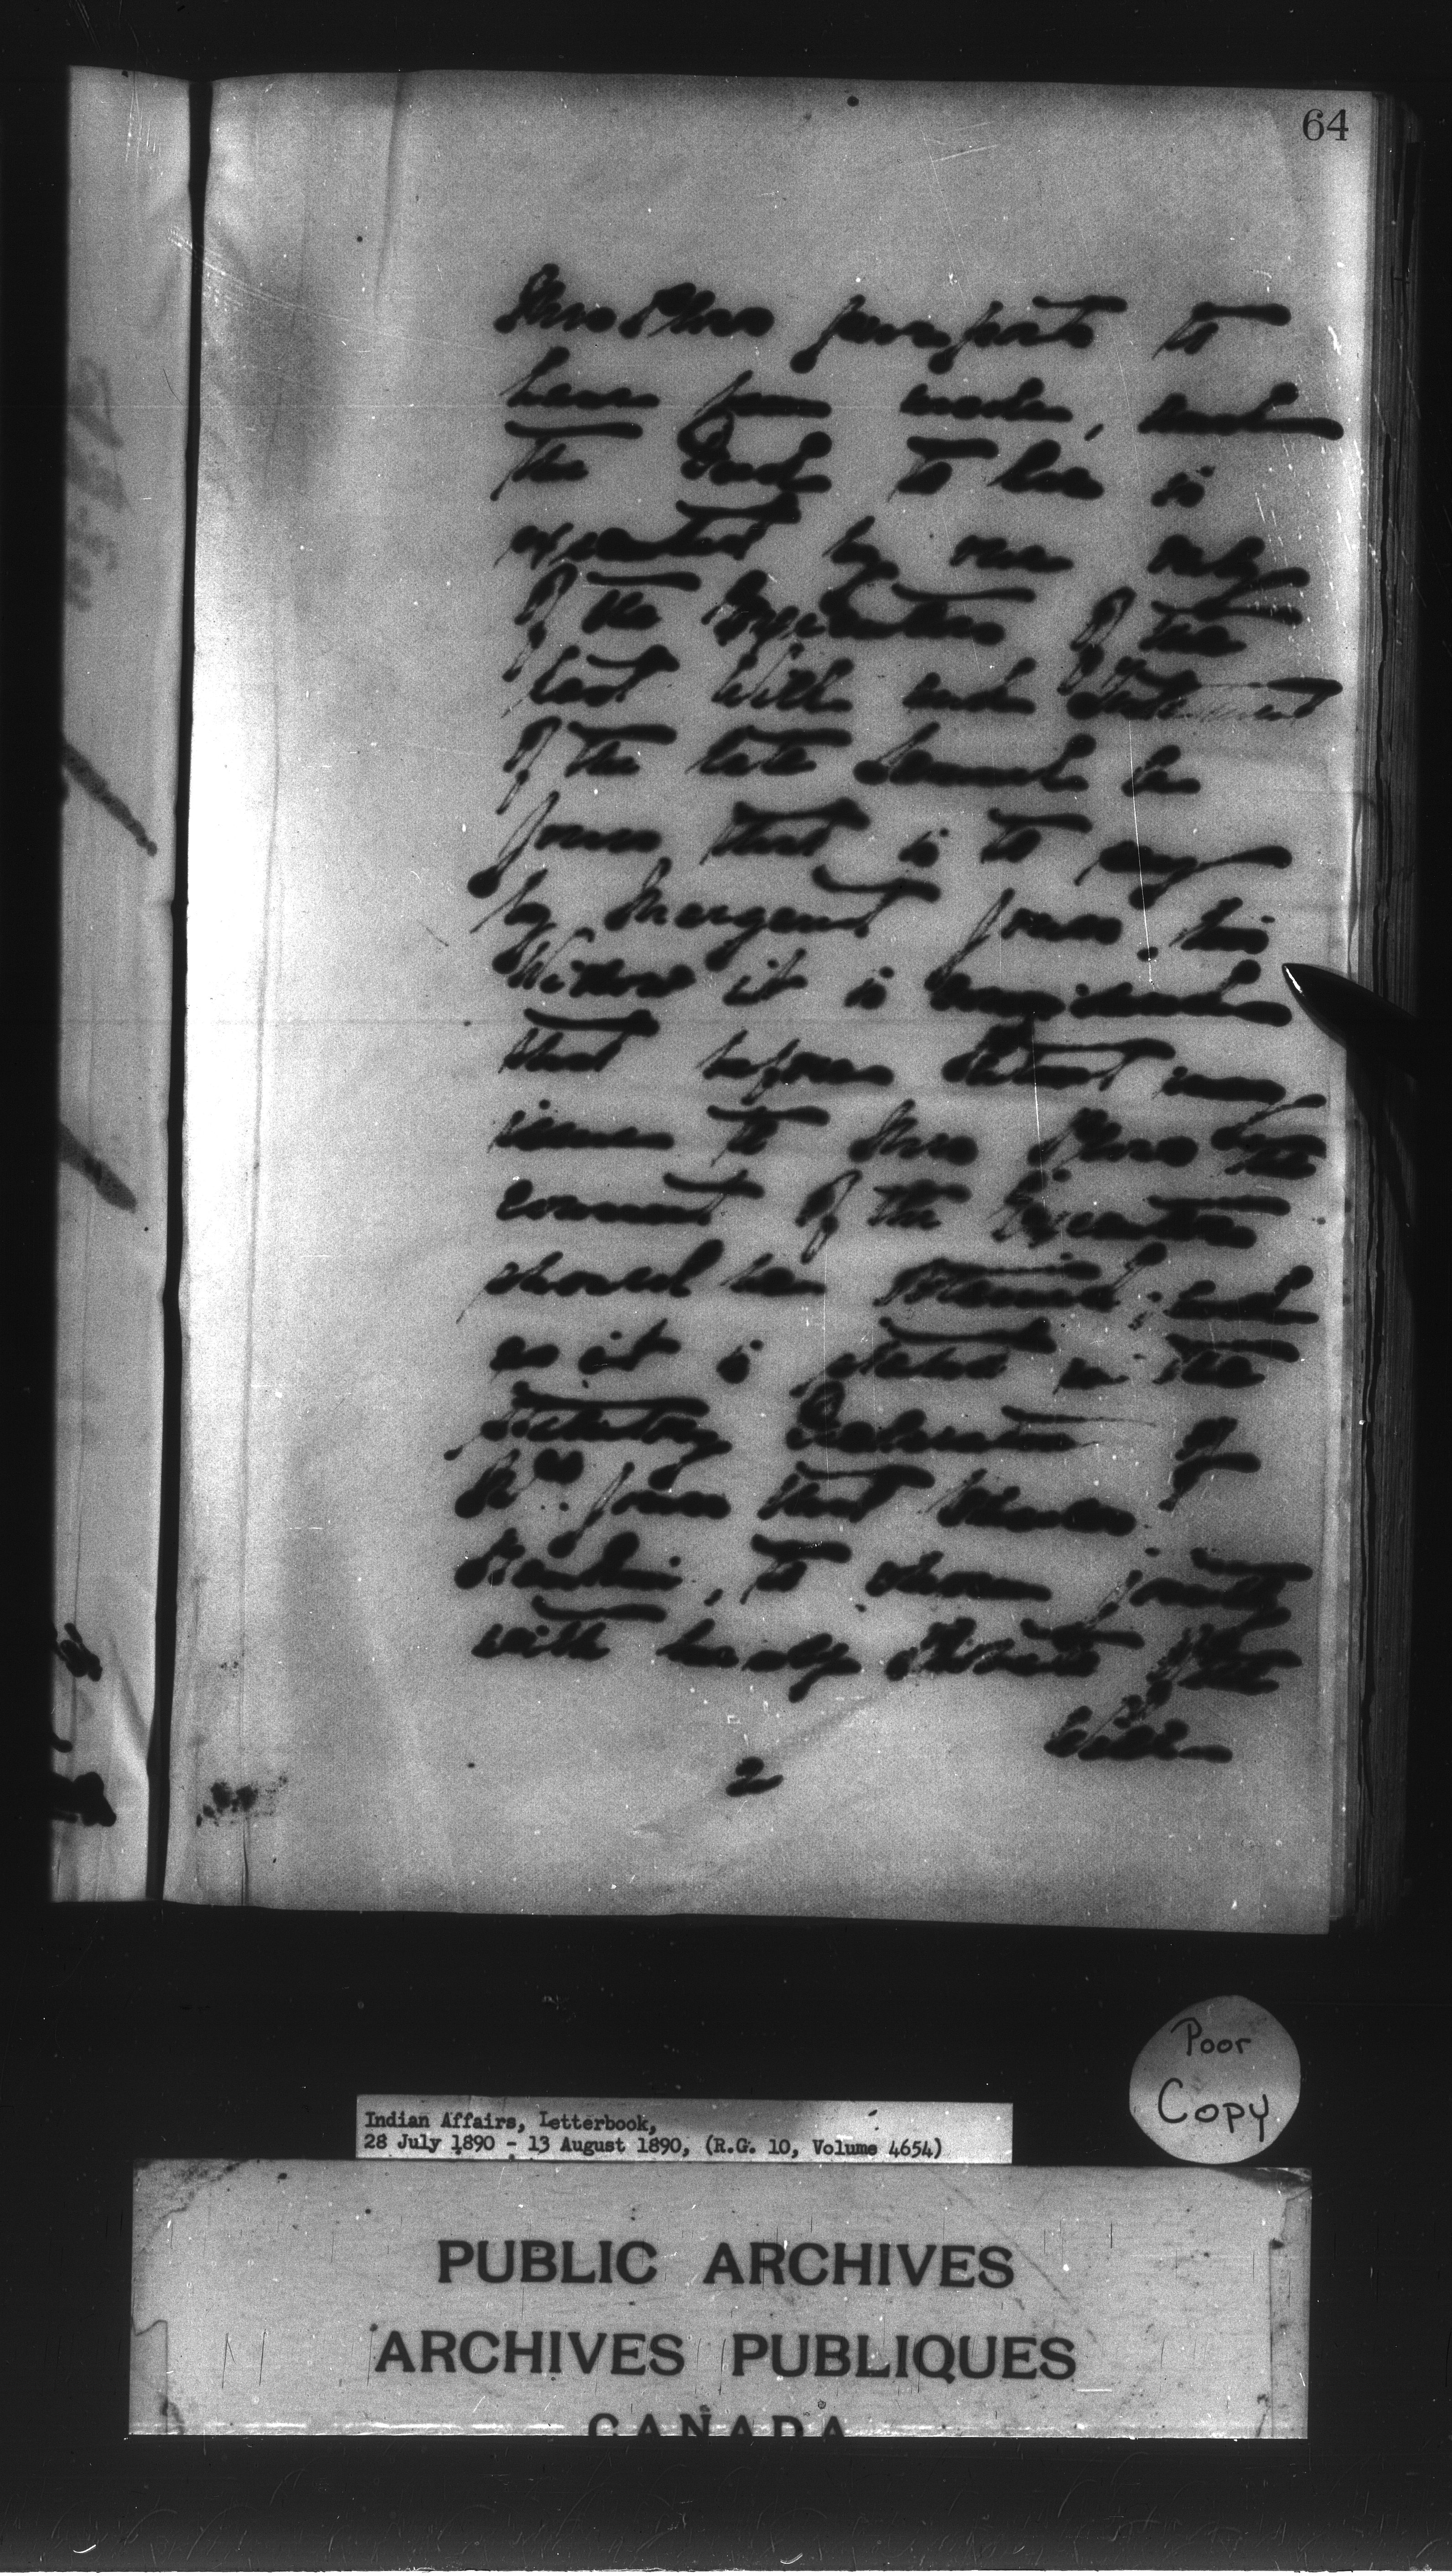 64
Mrs purports to
have been made, and
the Deed to her is
executed by one only
of the Executors of the
last Will and Testament
of the late Samuel
Jones, that is to say
by Margaret Jones, his
Widow it is considered
that before Patent may
issue to Mrs the
consent of the Executors
should be obtained; and
as it is stated in the
Statutory Declaration of
Jones that
to whom jointly
with herself
Will
2
Poor
Copy
Indian Affairs, Letterbook,
28 July 1890 - 13 August 1890, (R.G. 10, Volume 4654)
PUBLIC ARCHIVES
ARCHIVES PUBLIQUES
CANADA